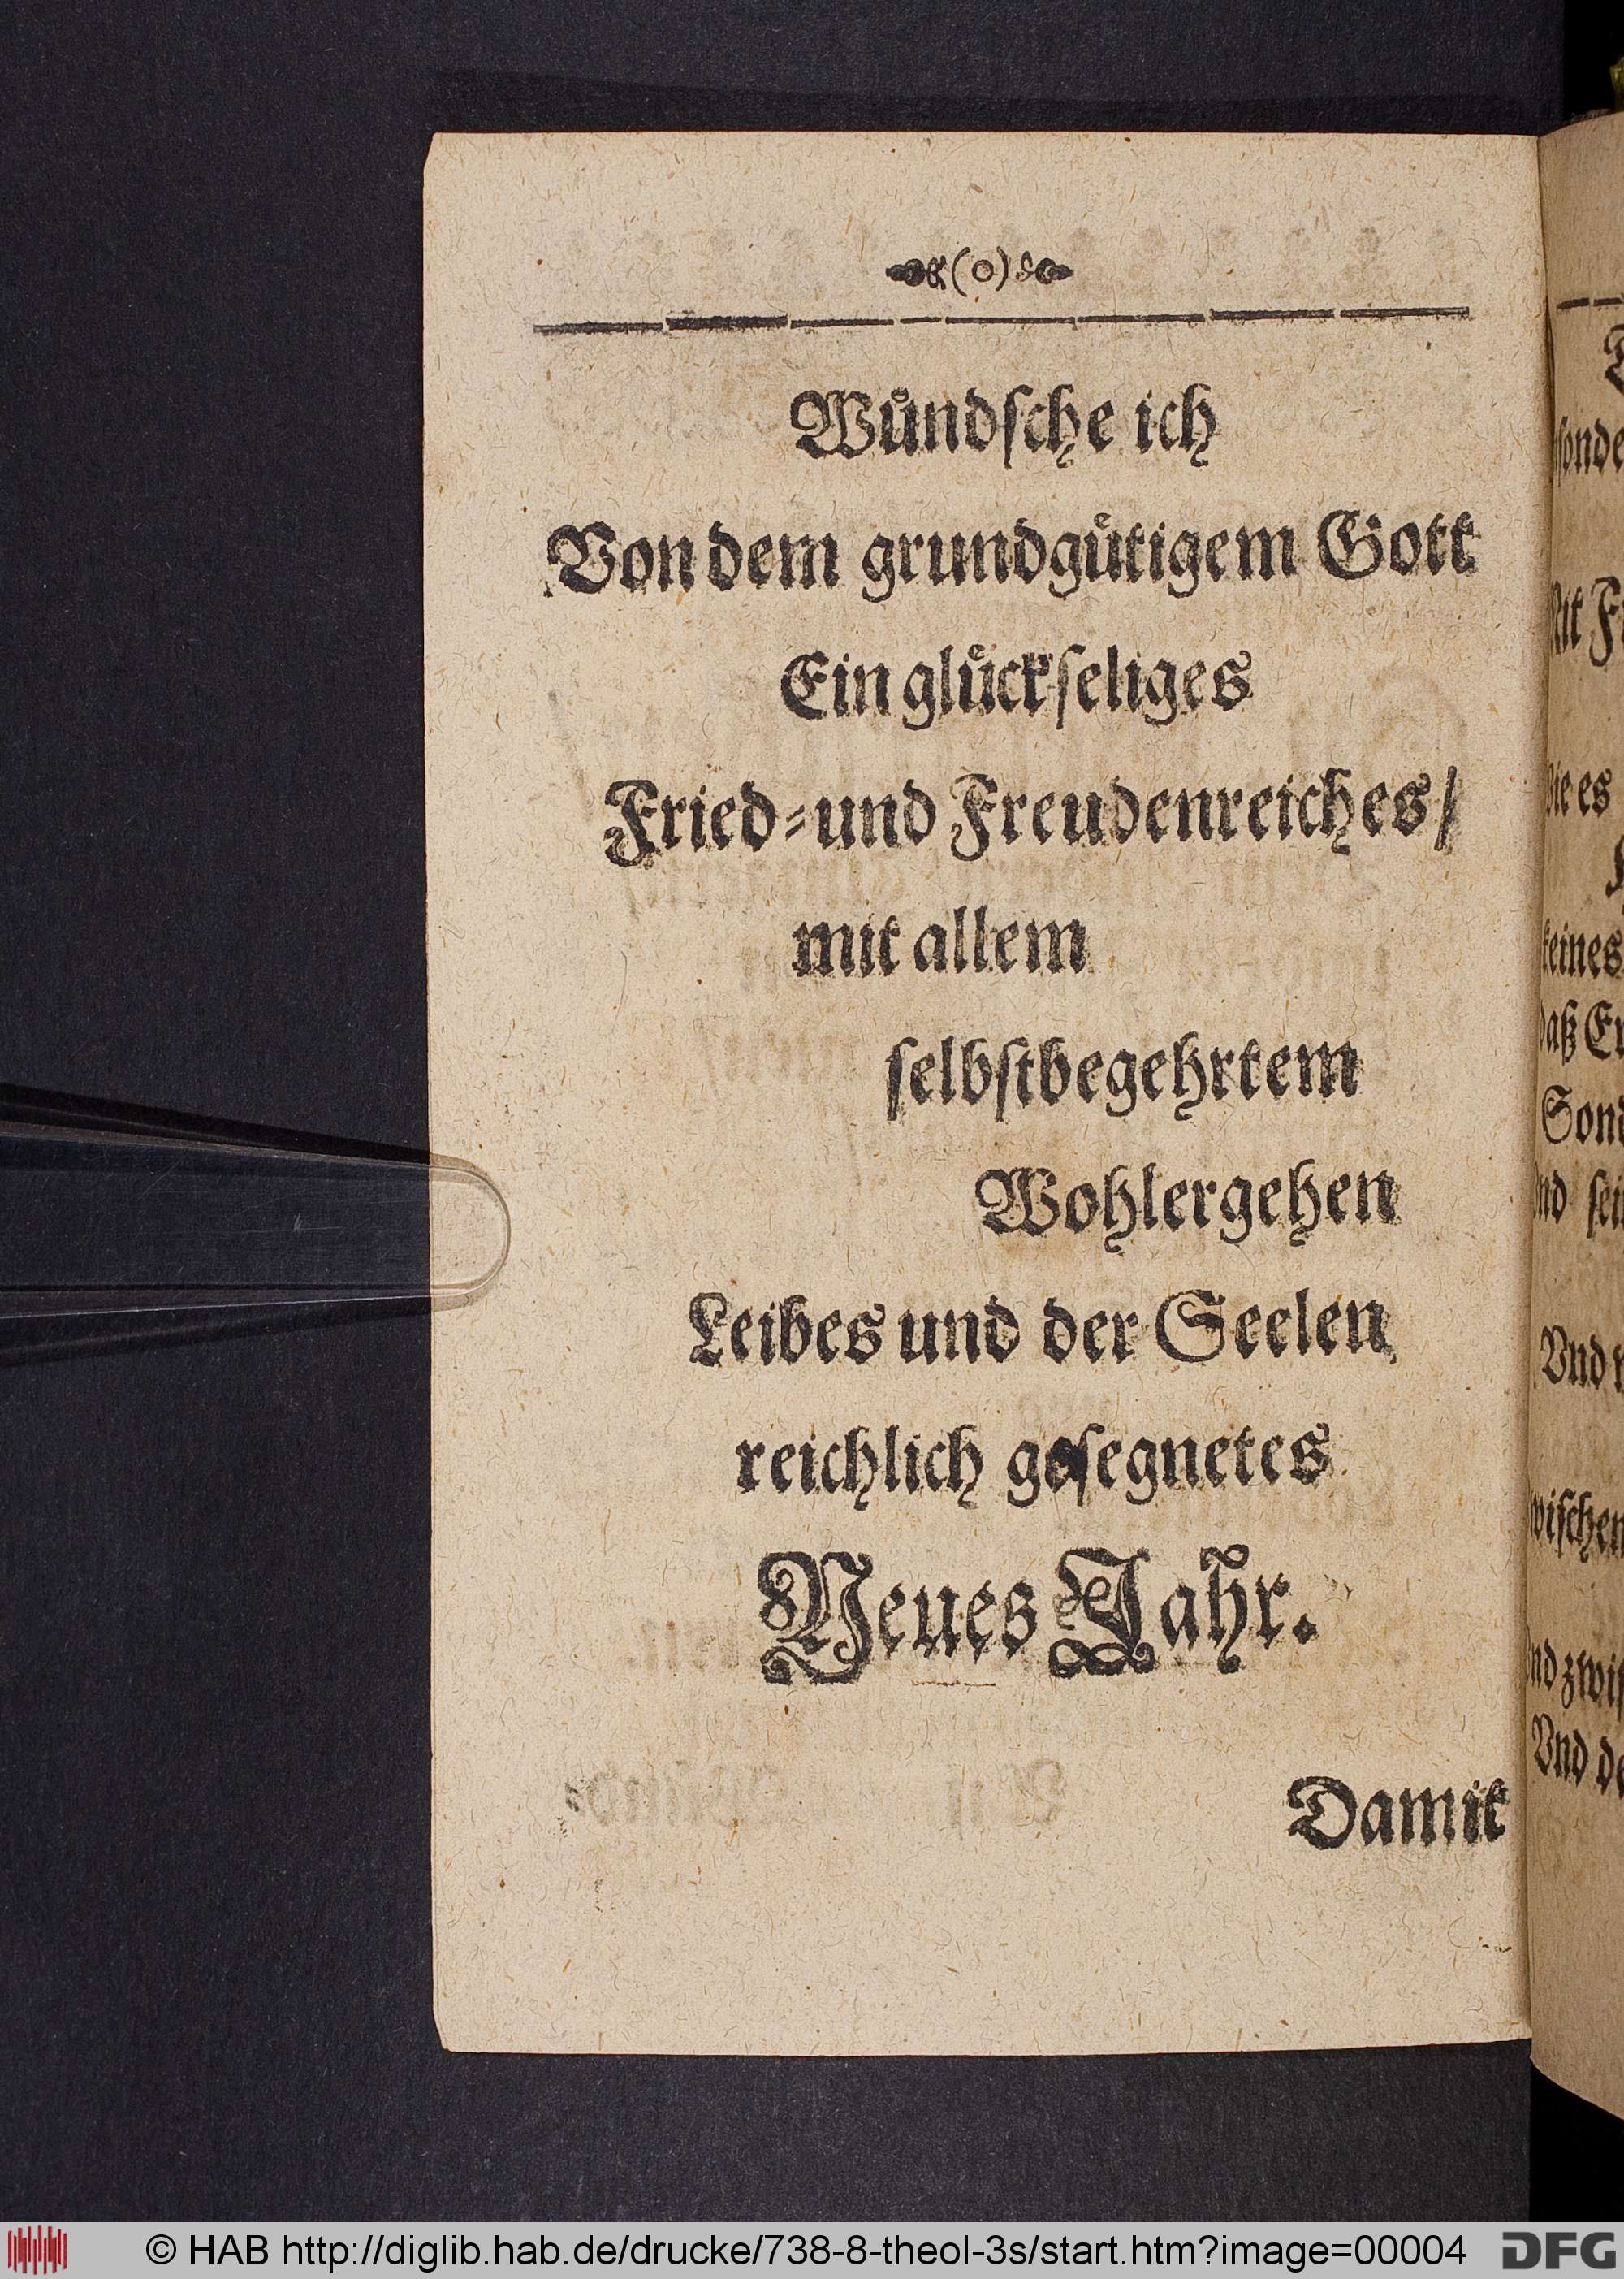 (o)
Wuͤndſche ich
Von dem grundguͤtigem Gott
Ein gluͤckſeliges
Fried⸗und Freudenreiches/
mit allem
ſelbſtbegehrtem
Wohlergehen
Leibes und der Seelen
reichlich geſegnetes
Neues Jahr.
Damit
ſonde
ie es
keines
daß
Sond
Vnd
wiſchen
nd zwiſ
Vnd de
© HAB http://diglib.hab.de/drucke/738-8-theol-3s/start.htm?image=00004
DFG